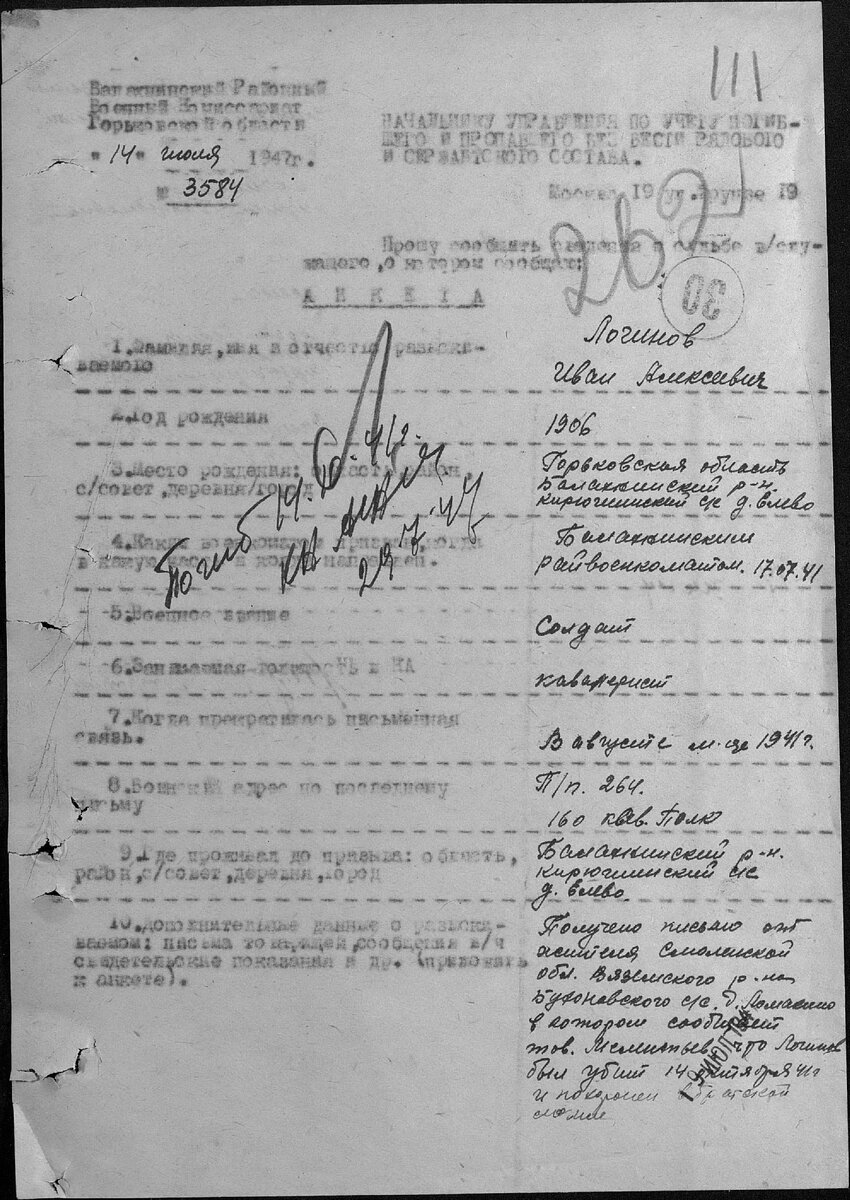 111
Балахнинский Районный
Военный Комиссариат
Горьковской области
"14" июля 1947г.
№ 3584
НАЧАЛЬНИКУ УПРАВЛЕНИЯ ПО УЧЕТУ ПОГИБ-
ШЕГО И ПРОПАВШЕГО БЕЗ ВЕСТИ РЯДОВОГО
И СЕРЖАНТСКОГО СОСТАВА.
Москва 19 ул. Фрунзе 19
262
Прошу сообщить сведения о судьбе в/слу-
жащего, о котором сообщаю:
30
А Н К Е Т А
1. Фамилия, имя и отчество разыски-
ваемого
Логинов
Иван Алексеевич
2. Год рождения
1906
3. Место рождения: область, район,
с/совет, деревня/город
Горьковская область
Балахнинский р-н.
Кирюшинский с/с д. Елево
Погиб 14
29.7.47
4. Каким военкоматом призван, когда
в какую часть и когда направлен.
Балахнинским
райвоенкоматом. 17.07.41
5. Военное звание
Солдат
6. Занимаемая должность в КА
кавалерист
7. Когда прекратилась письменная
связь.
В августе м-це 1941г.
8. Воинский адрес по последнему
письму
П/п. 264.
160 кав. Полк
9. Где проживал до призыва: область,
район, с/совет, деревня, город
Балахнинский р-н.
Кирюшинский с/с
д. Елево
10. Дополнительные данные о разыски-
ваемом: письма товарищей, сообщения в/ч
свидетельские показания и др. (приложить
к анкете).
Получено письмо от
жителя Смоленской
обл. Вяземского р-на
Бухоновского с/с. д. Ломакино
в котором сообщает
тов. что Логинов
был убит 14 октября 41г
и похоронен в братской
могиле